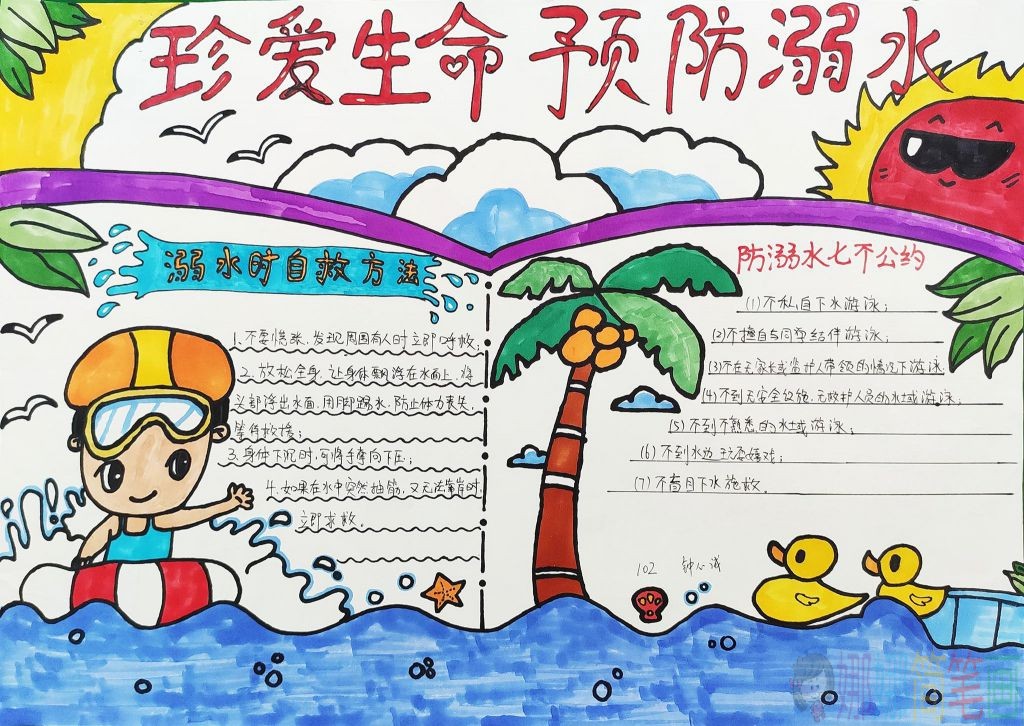 珍爱生命 预防溺水
溺水时自救方法
1.不要慌张,发现周围有人时立即呼救;
2.放松全身,让身体飘浮在水面上,将
头部浮出水面,用脚踢水,防止体力丧失,
等待救援;
3.身体下沉时,可将手掌向下压;
4.如果在水中突然抽筋,又无法靠岸时,
立即求救。
防溺水七不公约
(1)不私自下水游泳;
(2)不擅自与同学结伴游泳;
(3)不在无家长或监护人带领的情况下游泳
(4)不到无安全设施,无救护人员的水域游泳;
(5)不到不熟悉的水域游泳;
(6)不到水边玩耍嬉戏;
(7)不盲目下水施救。
102 钟心诚
简笔画